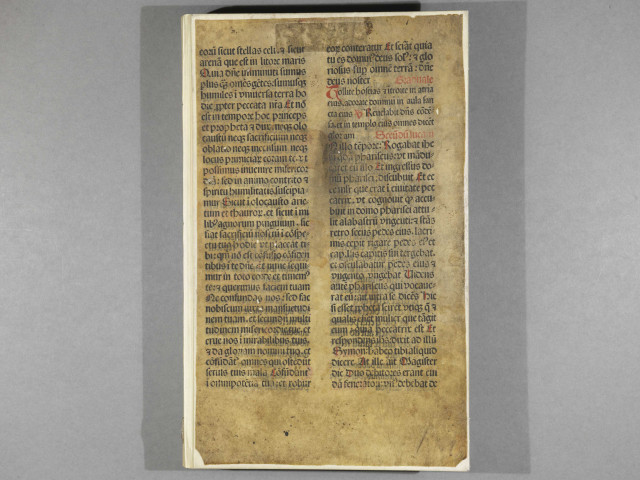 eorū sicut stellas celi: & sicut
arenā que est in litore maris
Quia dñe imminuti sumus
plus q̄ oēs gētes: sumusq;
humiles ī vniuersa terra ho
die ꝓpter peccata nr̄a Et nō
est in tempore hoc princeps
et propheta & dux neq; olo
caustū neq; sacrificium neq;
oblatio neq; incensum neq;
locus primiciarū coram te: vt
possimus inuenire misericor
diā: sed in animo contrito &
spiritu humilitatis suscipia
mur Sicut ī holocausto arie
tum et thauroꝝ: et sicut ī mi
libꝰ agnorum pinguium: sic
fiat sacrificiū nostrū ī cōspe
ctu tuo hodie vt placeat ti
bi: qm̄ nō est confusio cōfidē
tibus ī te dñe Et nunc sequi
mur in toto corde et timemꝰ
te: & querimus faciem tuam
Ne confundas nos: sed fac
nobiscum iuxta mansuetudi
nem tuam: et secundū multi
tudinem misericordie tue et
erue nos ī mirabilibus tuis:
& da gloriam nomini tuo: et
cōfūdātꝰ omnes qui ostēdūt
seruis tuis mala Cōfūdūtꝰ
ī omnipotētia tua: et robur
eoꝝ conteratur Et sciāt quia
tu es dominꝰ deus solꝰ: & glo
riosus suꝑ omnē terrā: dñe
deus noster
Tollite hostias & itroite in atria
eius: adorate dominū in aula san
cta eius ℣ Reuelabit dñs cōdē
sa: et in templo eius omnes dicēt
gloriam Secūdū lucam
In illo tꝑe: Rogabat ihe
sū qdā phariseus: vt mādu
caret cū illo Et ingressus do
mū pharisei: discubuit Et ec
ce mulr̄ que erat ī ciuitate pec
catrix: vt cognouit ꝙ accu
buit in domo pharisei: attu
lit alabastrū vnguēti: & stās
retro secus pedes eius: lacri
mis cepit rigare pedes eiꝰ: et
capillis capitis sui tergebat:
et osculabatur pedes eius &
vnguento vngebat Uidens
autē phariseus qui vocaue
rat eū: ait intra se dicēs Hic
si esset ꝓpheta: sciret vtiq; q̄ &
qualis est mulier que tāgit
eum: quia peccatrix est Et
respondens ihs̄: dixit ad illū
Symon: habeo tibi aliquid
dicere At ille ait Magister
dic Duo debitores erant cui
dā feneratori: vnꝰ debebat de